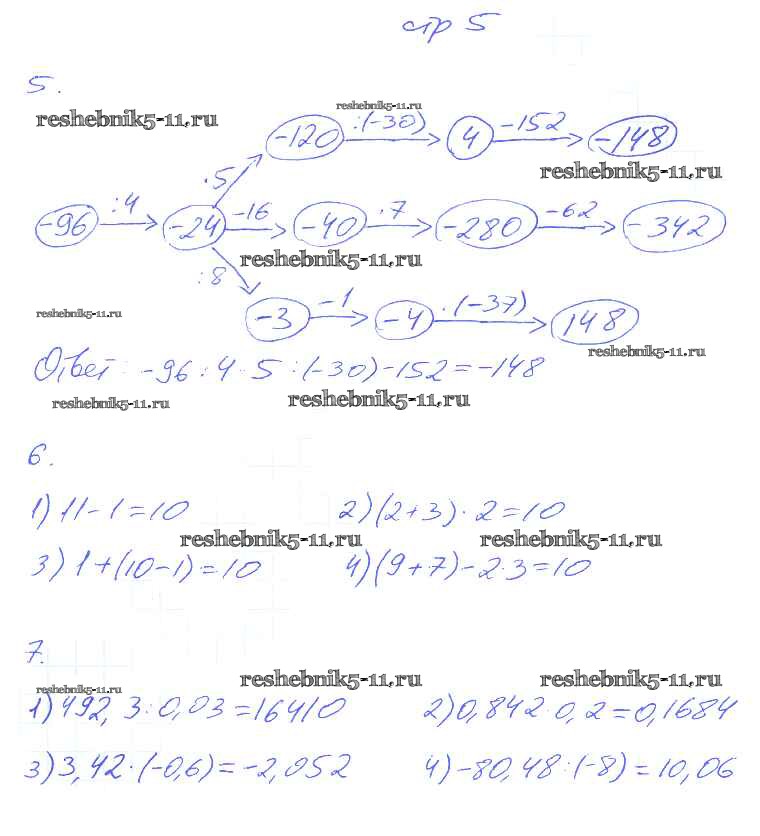 стр 5
5.
reshebnik5-11.ru
reshebnik5-11.ru
-120 :(-30) 4 -152 -148
reshebnik5-11.ru
·5
-96 :4 -24 -16 -40 ·7 -280 -62 -342
reshebnik5-11.ru
:8
reshebnik5-11.ru
-3 -1 -4 ·(-37) 148
reshebnik5-11.ru
Ответ: -96:4·5:(-30)-152=-148
reshebnik5-11.ru reshebnik5-11.ru
6.
1) 11-1=10 2) (2+3)·2=10
reshebnik5-11.ru reshebnik5-11.ru
3) 1+(10-1)=10 4) (9+7)-2·3=10
7.
reshebnik5-11.ru reshebnik5-11.ru
reshebnik5-11.ru
1) 492,3:0,03=16410 2) 0,842·0,2=0,1684
3) 3,42·(-0,6)=-2,052 4) -80,48:(-8)=10,06